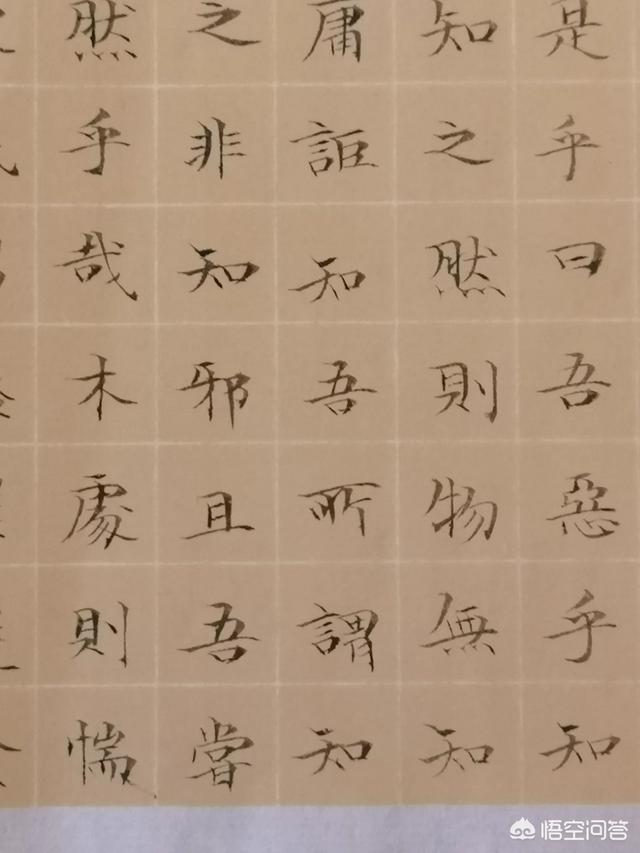 是乎曰吾惡乎知
知之然則物無知
庸詎知吾所謂知
之非知邪且吾嘗
然乎哉木處則惴
悟空问答